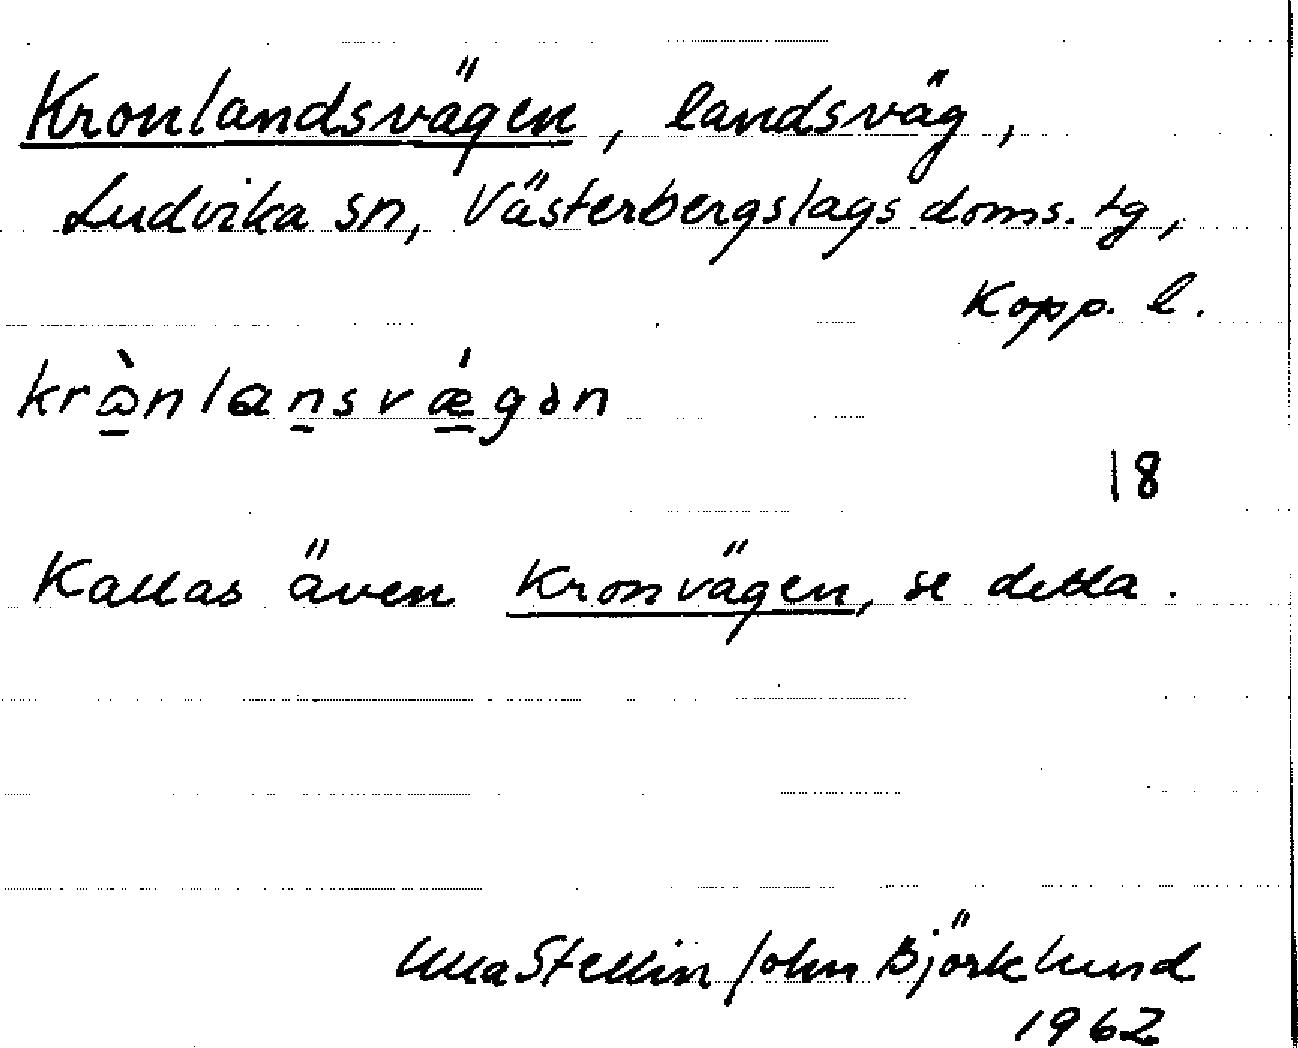 Kronlandsvägen, landsväg,
Ludvika sn, Västerbergslags doms. tg,
Kopp. l.
krò̱nlaṉsvǽ̱gən
18
Kallas även Kronvägen, se detta.
Ulla Stellin John Björklund
1962